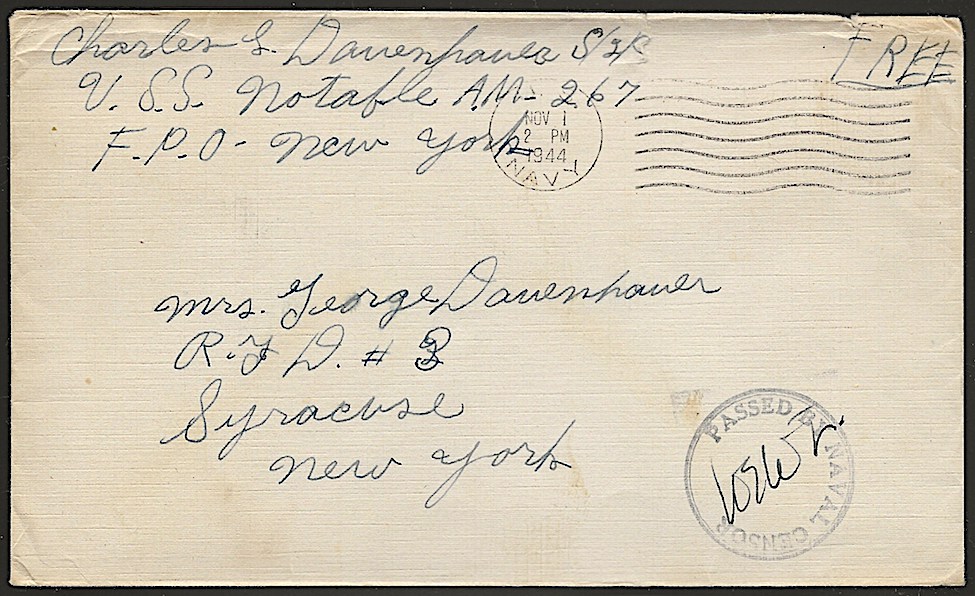 Charles L. Dauenhauer S/2c
U.S.S. Notable AM-267
F.P.O - New York
FREE
NOV 1
2 PM
1944
NAVY
Mrs. George Dauenhauer
R.F.D. # 3
Syracuse
New York
PASSED BY NAVAL CENSOR